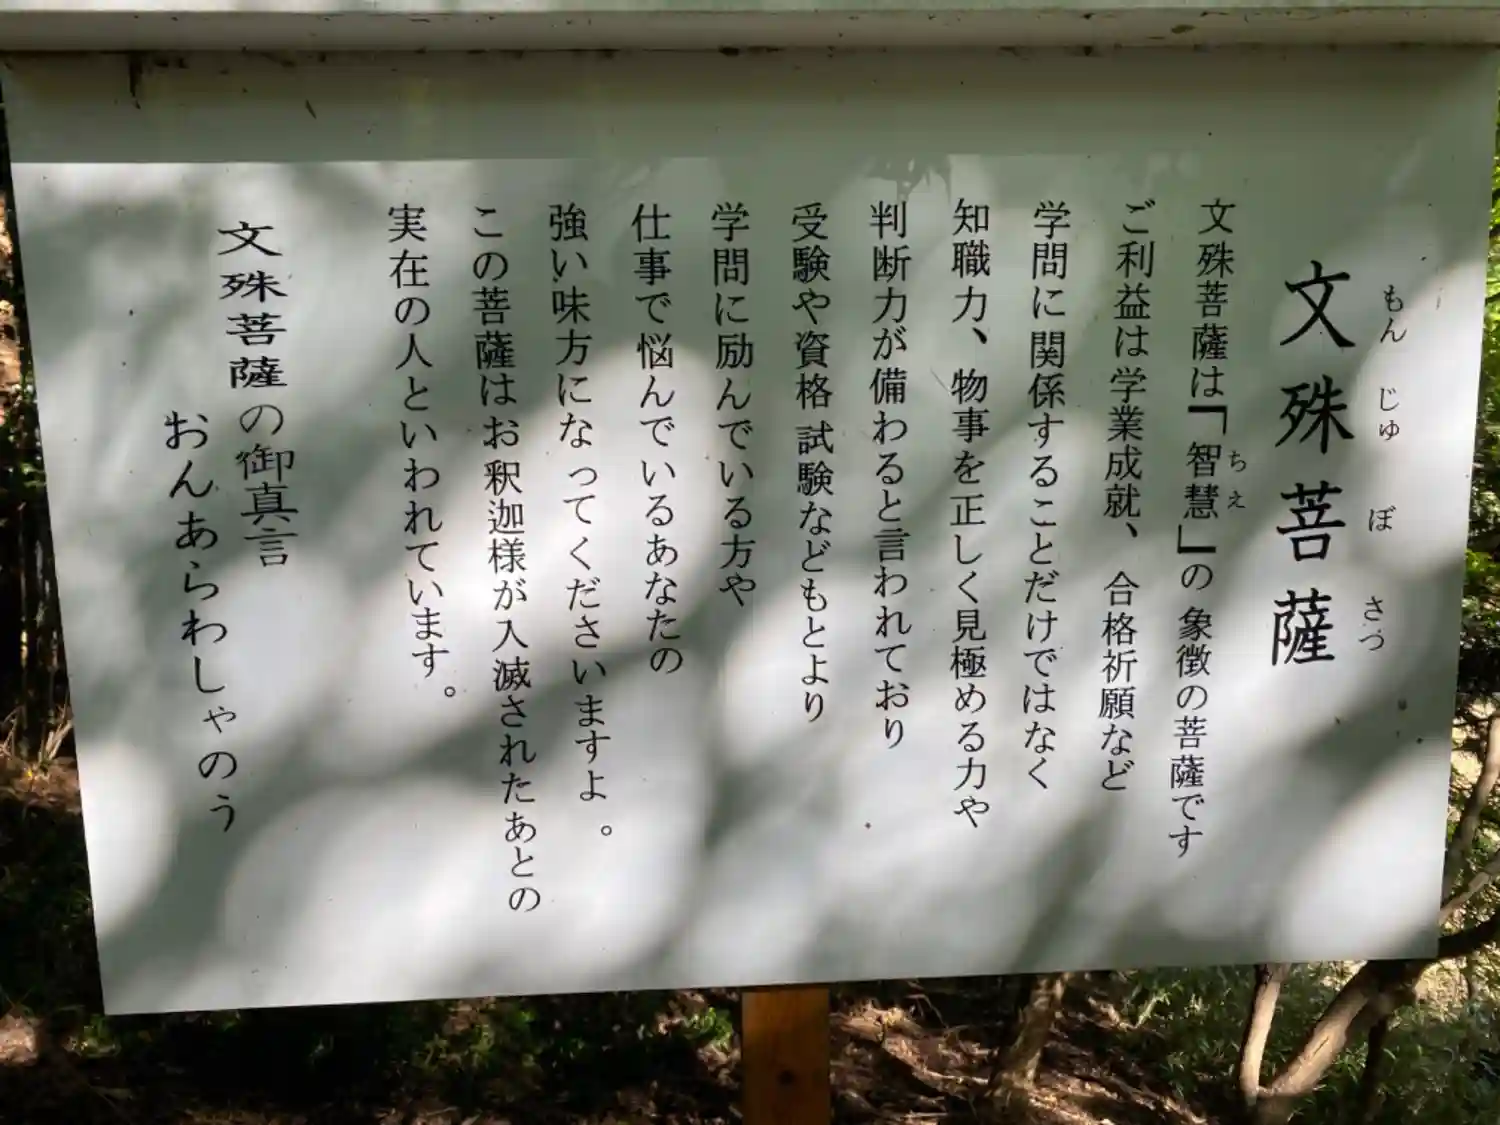 文殊菩薩
もんじゅぼさつ
文殊菩薩は「智慧」の象徴の菩薩です
ちえ
ご利益は学業成就、合格祈願など
学問に関係することだけではなく
知職力、物事を正しく見極める力や
判断力が備わると言われており
受験や資格試験などもとより
学問に励んでいる方や
仕事で悩んでいるあなたの
強い味方になってくださいますよ。
この菩薩はお釈迦様が入滅されたあとの
実在の人といわれています。
文殊菩薩の御真言
おんあらわしゃのう